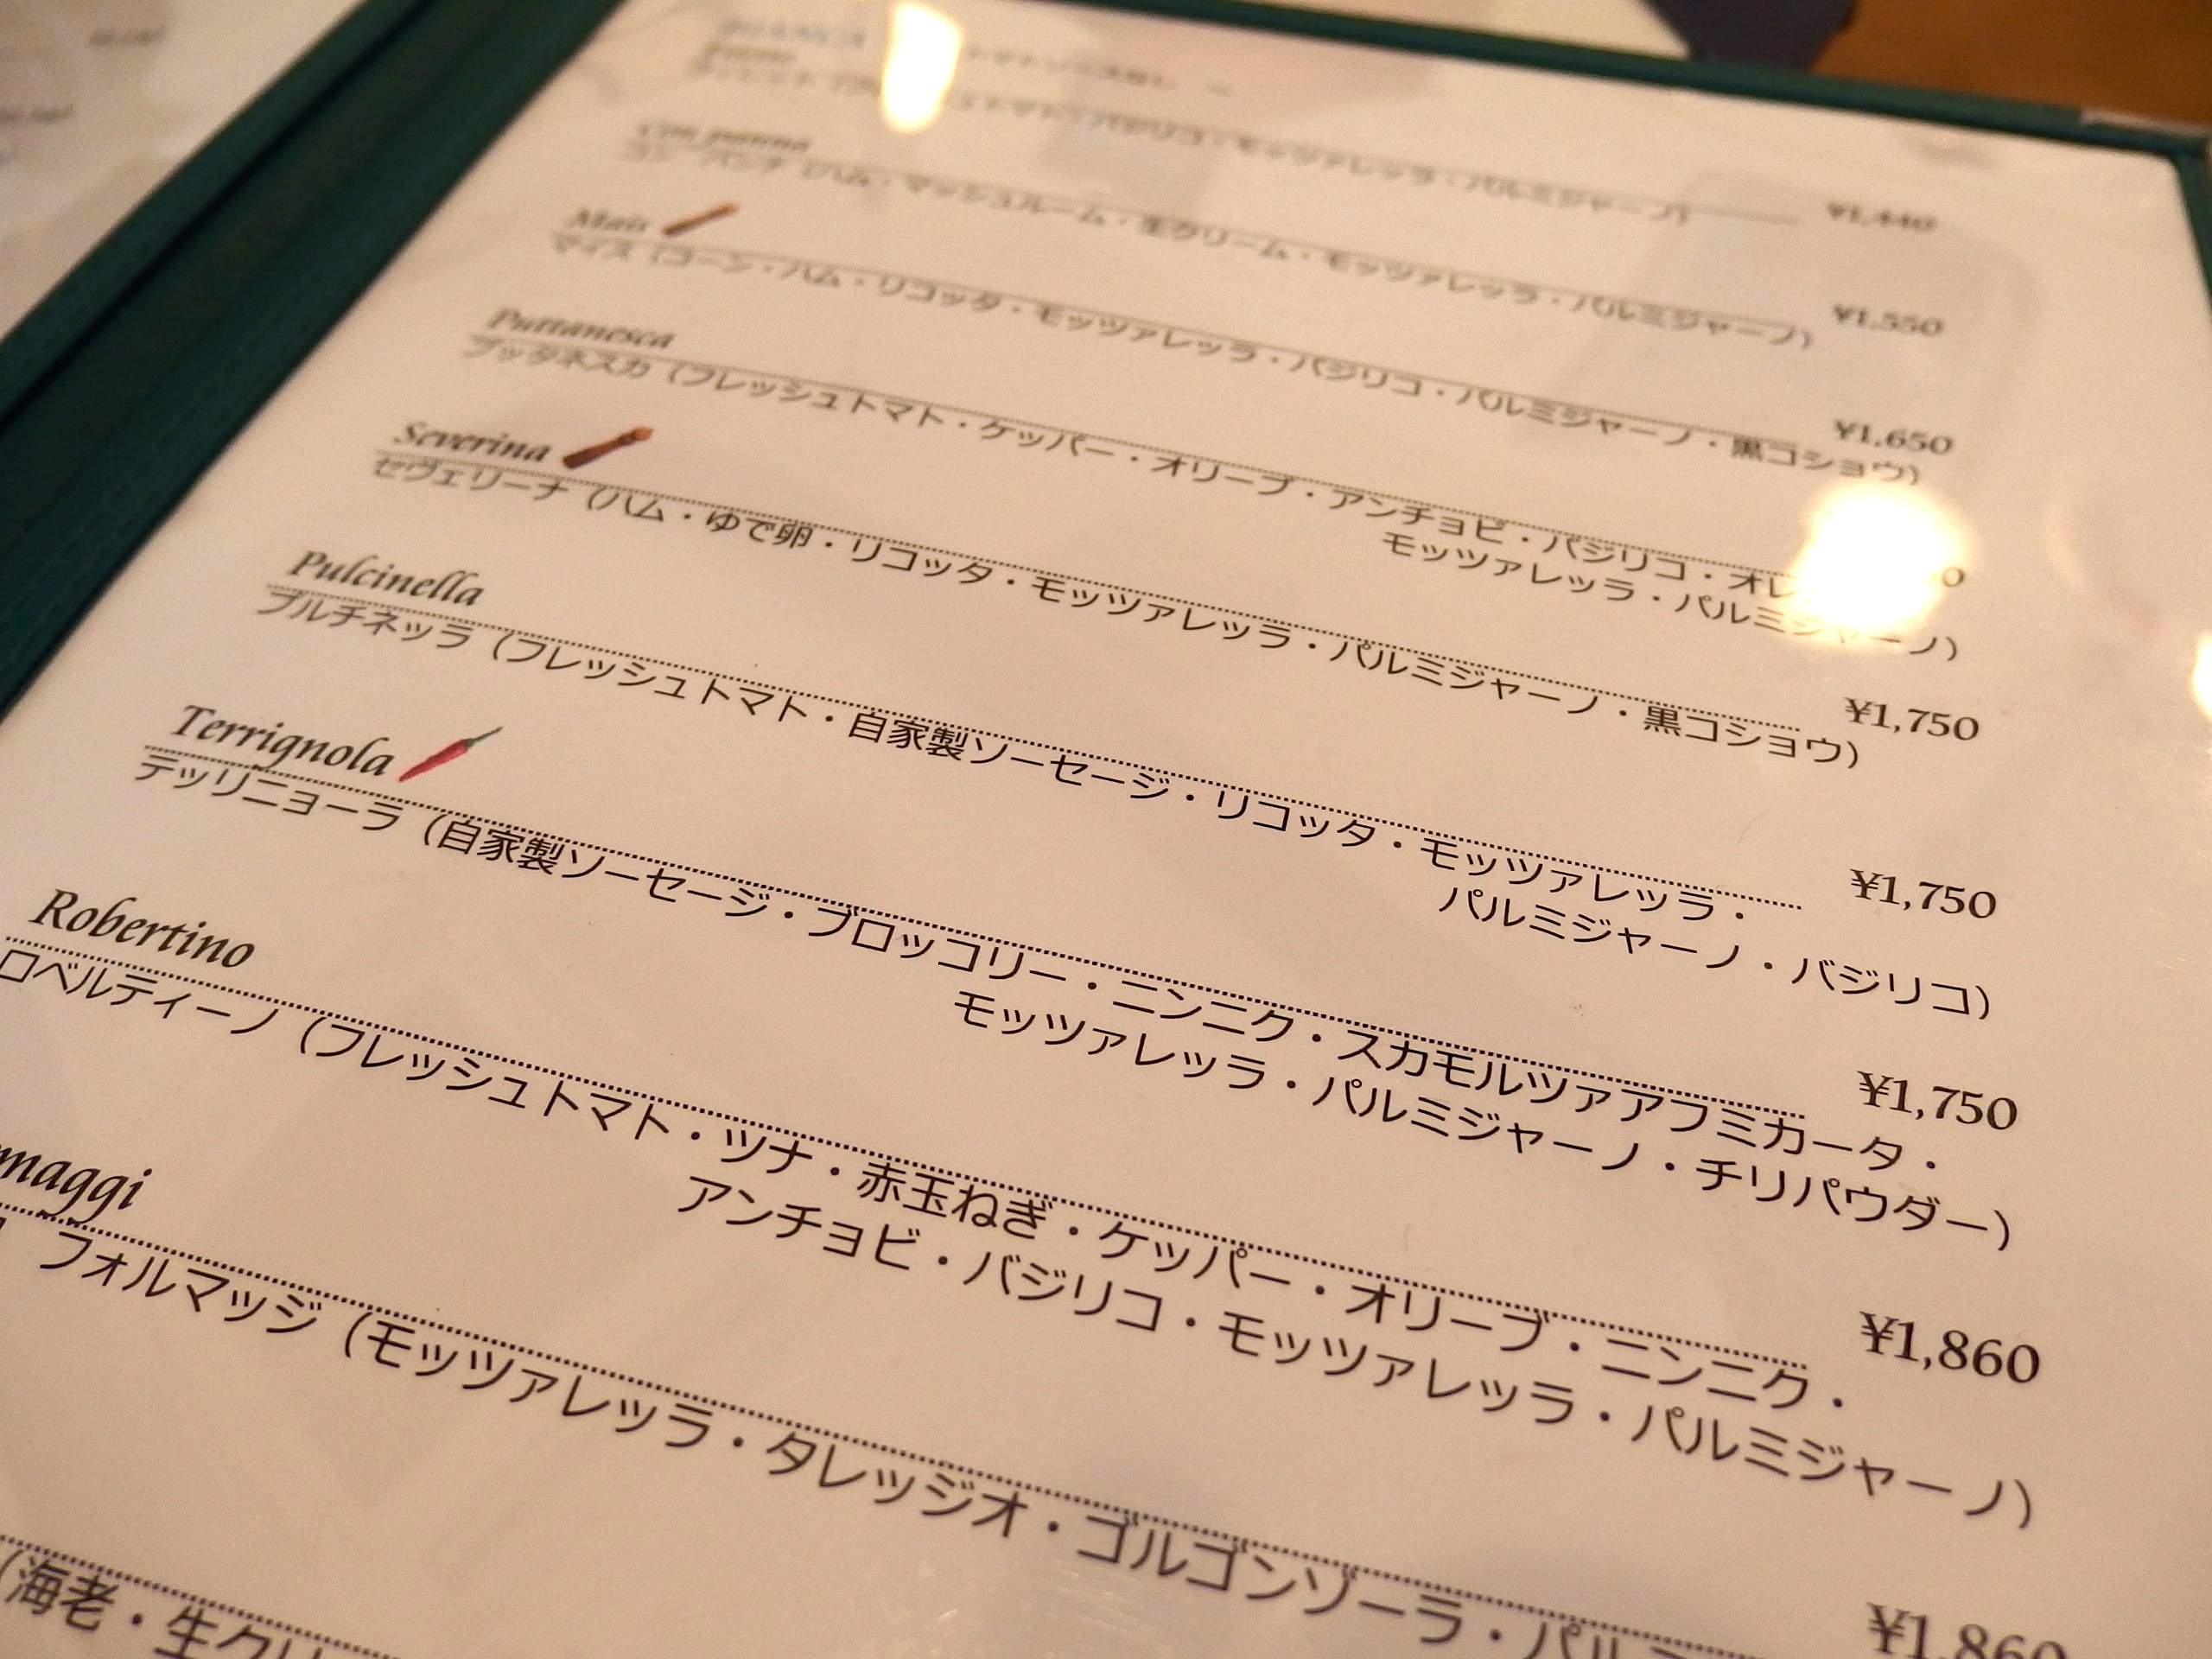 BIANCA トマトソースなし ～
トマト・バジリコ・モッツァレッラ・パルミジャーノ) ¥1,440
Con panna
コン パンナ (ハム・マッシュルーム・生クリーム・モッツァレッラ・パルミジャーノ) ¥1,550
Mais
マイス (コーン・ハム・リコッタ・モッツァレッラ・バジリコ・パルミジャーノ・黒コショウ) ¥1,650
Puttanesca
プッタネスカ (フレッシュトマト・ケッパー・オリーブ・アンチョビ・バジリコ・オレ
モッツァレッラ・パルミジャーノ)
Severina
セヴェリーナ (ハム・ゆで卵・リコッタ・モッツァレッラ・パルミジャーノ・黒コショウ) ¥1,750
Pulcinella
プルチネッラ (フレッシュトマト・自家製ソーセージ・リコッタ・モッツァレッラ・ ¥1,750
パルミジャーノ・バジリコ)
Terrignola
テッリニョーラ (自家製ソーセージ・ブロッコリー・ニンニク・スカモルツァアフミカータ・ ¥1,750
モッツァレッラ・パルミジャーノ・チリパウダー)
Robertino
ロベルティーノ (フレッシュトマト・ツナ・赤玉ねぎ・ケッパー・オリーブ・ニンニク・ ¥1,860
アンチョビ・バジリコ・モッツァレッラ・パルミジャーノ)
maggi
フォルマッジ (モッツァレッラ・タレッジオ・ゴルゴンゾーラ・パル ¥1,860
(海老・生クリ